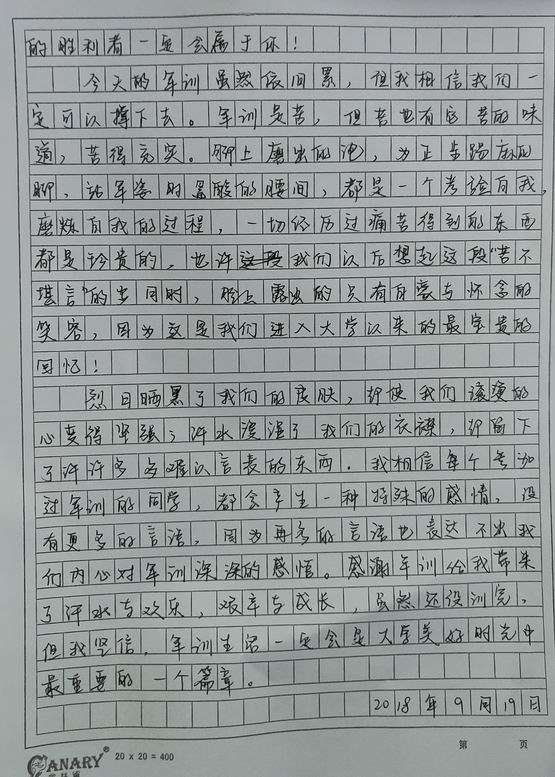 的胜利者一定会属于你！
今天的军训虽然依旧累，但我相信我们一
定可以撑下去。军训是苦，但苦也有它苦的味
道，苦得充实。脚上磨出的泡，为正步踢麻的
脚，站军姿时最酸的腰间，都是一个考验自我，
磨炼自我的过程，一切经历过痛苦得到的东西
都是珍贵的，也许这段我们以后想起这段“苦不
堪言”的时，脸上露出的只有自豪与怀念的
笑容，因为这是我们进入大学以来的最宝贵的
回忆！
烈日晒黑了我们的皮肤，却使我们滚烫的
心变得坚强；汗水浸湿了我们的衣襟，却留下
了许许多多难以言表的东西。我相信每个参加
过军训的同学，都会产生一种特殊的感情，没
有更多的言语，因为再多的言语也表达不出我
们内心对军训深深的感悟。感谢军训给我带来
了汗水与欢乐，艰辛与成长，虽然还没训完，
但我坚信，军训生活一定会是大学美好时光中
最重要的一个篇章。
2018年9月19日
CANARY® 20×20=400 第 页